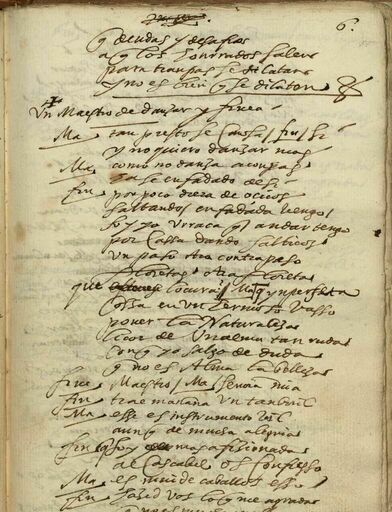 6.
q deudas y desafios
a q los honrrados salen
para trampas se dilatan
y no es bien q se dilaten
Un Maestro de danzar y finea
Ma tan presto se cansa / fin / si
y no quiero danzar mas
Ma como no danza a conpas
ase enfadado de si
fin por poco diera de oçicos
saltando enfadada vengo
soy yo urraca q andar tengo
por cassa dando salticos
un paso otro contrapaso
floretas otra floreta
que locura / Ma / q ynperfeta
cossa en un hermoso vasso
poner la Naturaleza
licor de un alma tan ruda
con q yo salgo de duda
q no es Alma la belleza
fine Maestro / Ma Señora mia
fin trae mañana un tanboril
Ma esse es instrumento vil
aunq de mucha alegria
fin q soy mas afizionada
al cascabel os confiesso
Ma es mui de caballos esso
fin hazed vos lo q me agrada